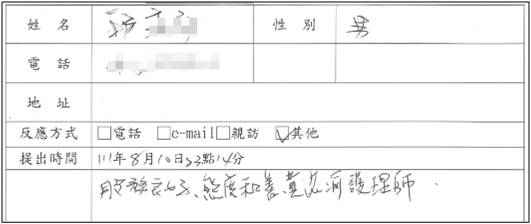 姓名 性別 男
電話
地址
反應方式 □電話 □e-mail □親訪 ☑其他
提出時間 111年8月10日23點14分
服務良好、態度和善黃芯渝護理師.